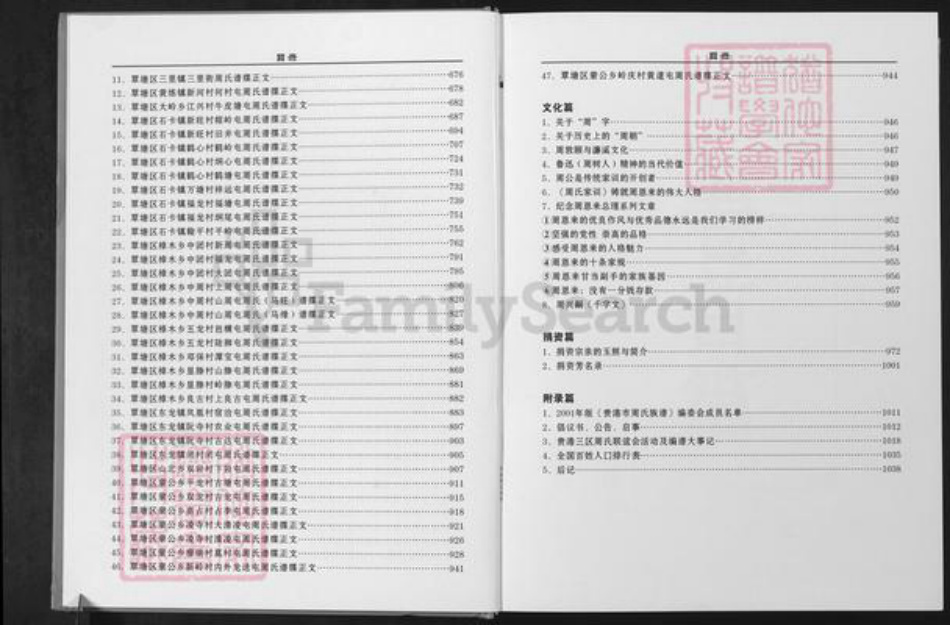 11、覃塘区三里镇三里街周氏谱牒正文 676
12、覃塘区黄练镇新河村何村屯周氏谱牒正文 678
13、覃塘区大岭乡江兴村牛皮塘屯周氏谱牒正文 682
14、覃塘区石卡镇新旺村 岭屯周氏谱牒正文 687
15、覃塘区石卡镇新旺村旧井屯周氏谱牒正文 694
16、覃塘区石卡镇鹤心村鹤岭屯周氏谱牒正文 707
17、覃塘区石卡镇鹤心村 心屯周氏谱牒正文 724
18、覃塘区石卡镇鹤心村鹤塘屯周氏谱牒正文 731
19、覃塘区石卡镇万塘村祥远屯周氏谱牒正文 732
20、覃塘区石卡镇福龙村福塘屯周氏谱牒正文 739
21、覃塘区石卡镇福龙村 尾屯周氏谱牒正文 751
22、覃塘区石卡镇 平村平岭屯周氏谱牒正文 755
23、覃塘区樟木乡中团村新周屯周氏谱牒正文 762
24、覃塘区樟木乡中团村福龙屯周氏谱牒正文 791
25、覃塘区樟木乡中团村大团屯周氏谱牒正文 795
26、覃塘区樟木乡中周村上周屯周氏谱牒正文 806
27、覃塘区樟木乡中周村山周屯周氏(马旺)谱牒正文 820
28、覃塘区樟木乡中周村山周屯周氏(马維)谱牒正文 827
29、覃塘区樟木乡五龙村 屯周氏谱牒正文 839
30、覃塘区樟木乡五龙村 屯周氏谱牒正文 854
31、覃塘区樟木乡邓保村 屯周氏谱牒正文 863
32、覃塘区樟木乡 村山 屯周氏谱牒正文 869
33、覃塘区樟木乡 村岭 屯周氏谱牒正文 881
34、覃塘区樟木乡良古村上良古屯周氏谱牒正文 882
35、覃塘区东龙镇凤凰村 屯周氏谱牒正文 883
36、覃塘区东龙镇 村农业屯周氏谱牒正文 897
37、覃塘区东龙镇 村古达屯周氏谱牒正文 903
38、覃塘区东龙镇 屯周氏谱牒正文 905
39、覃塘区山北乡 村下 屯周氏谱牒正文 907
40、覃塘区蒙公乡平龙村古塘屯周氏谱牒正文 911
41、覃塘区蒙公乡 龙村古龙屯周氏谱牒正文 915
42、覃塘区蒙公乡 村 李屯周氏谱牒正文 918
43、覃塘区蒙公乡凌寺村大清凌屯周氏谱牒正文 921
44、覃塘区蒙公乡凌寺村清凌屯周氏谱牒正文 926
45、覃塘区蒙公 村 村屯周氏谱牒正文 928
46、覃塘区蒙公乡新岭村内外龙达屯周氏谱牒正文 941
47、覃塘区蒙公乡岭庆村黄道屯周氏谱牒正文 944
文化篇
1、关于“周”字 946
2、关于历史上的“周朝” 946
3、周敦颐与濂溪文化 947
4、鲁迅(周树人)精神的当代价值 949
5、周公是传统家训的开创者 949
6、《周氏家训》铸就周恩来的伟大人格 950
7、纪念周恩来总理系列文章
①周恩来的优良作风与优秀品德永远是我们学习的榜样 952
②坚强的党性 崇高的品格 953
③感受周恩来的人格魅力 954
④周恩来的十条家规 955
⑤周恩来甘当副手的家族基因 956
⑥周恩来:没有一分钱存款 957
8、周兴嗣《千字文》 959
捐资篇
1、捐资宗亲的玉照与简介 972
2、捐资芳名录 1001
附录篇
1、2001年版《贵港市周氏族谱》编委会成员名单 1011
2、倡议书、公告、启事 1012
3、贵港三区周氏联谊会活动及编谱大事记 1018
4、全国百姓人口排行表 1035
5、后记 1038
FamilySearch